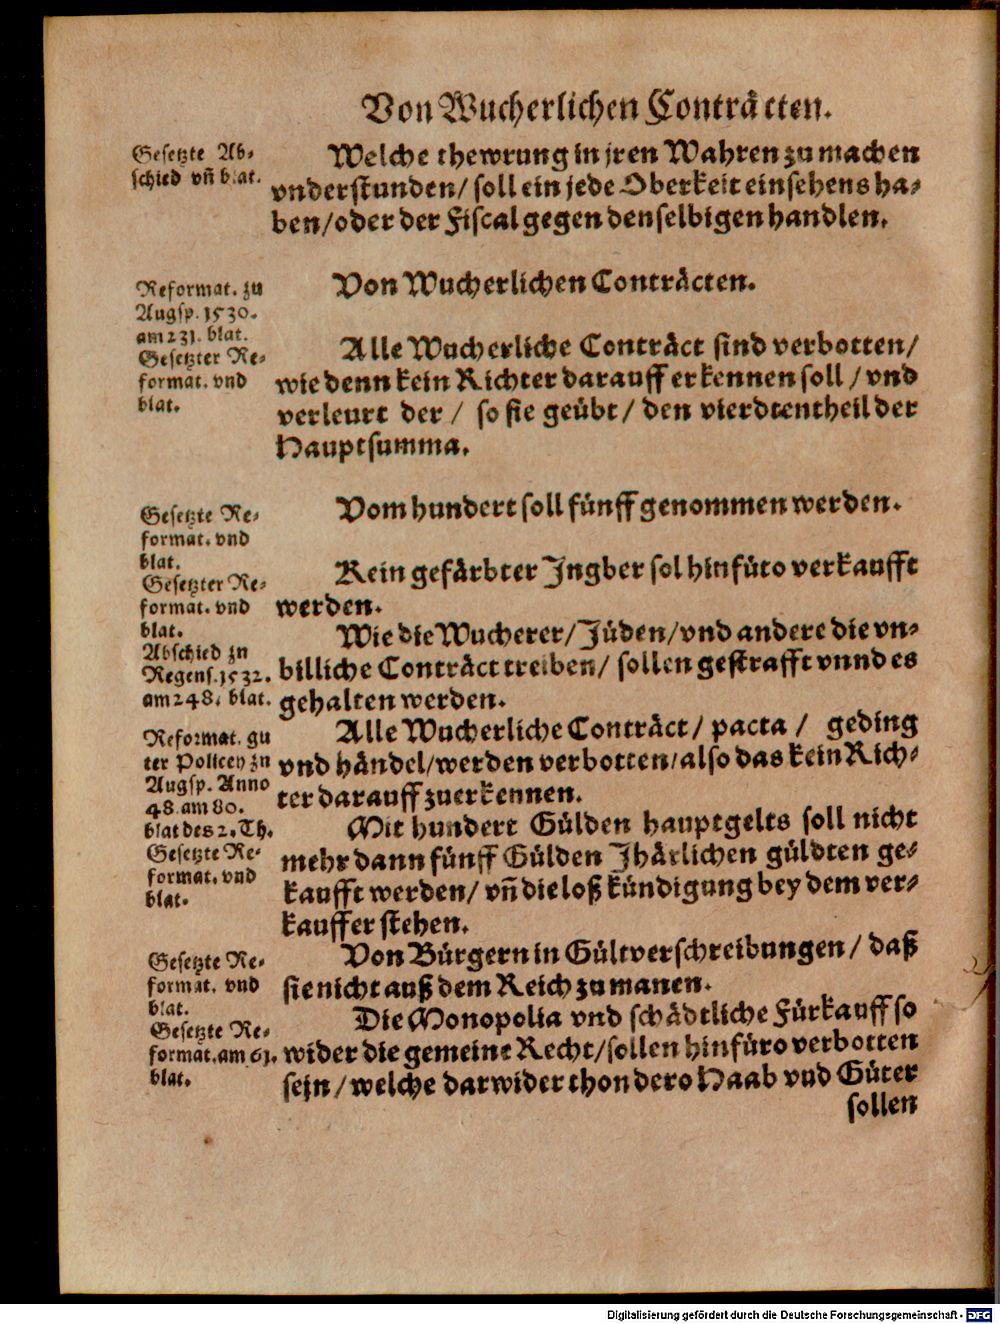 Von Wucherlichen Conträcten.
Gesetzte Ab⸗
schied vñ blat.
Welche thewrung in jren Wahren zu machen
vnderstunden/ soll ein jede Oberkeit einsehens ha⸗
ben/ oder der Fiscal gegen denselbigen handlen.
Von Wucherlichen Conträcten.
Reformat. zu
Augsp. 1530.
am 231. blat.
Gesetzter Re⸗
format. vnd
blat.
Alle Wucherliche Conträct sind verbotten/
wie denn kein Richter darauff erkennen soll / vnd
verleurt der / so sie geübt / den vierdtentheil der
Hauptsumma.
Gesetzte Re⸗
format. vnd
blat.
Vom hundert soll fünff genommen werden.
Gesetzter Re⸗
format. vnd
blat.
Kein gefärbter Ingber sol hinfüro verkaufft
werden.
Abschied zu
Regens. 1532.
am 248. blat.
Wie die Wucherer/ Jüden/ vnd andere die vn⸗
billiche Conträct treiben/ sollen gestrafft vnnd es
gehalten werden.
Reformat. gu
ter Policey zu
Augsp. Anno
48. am 80.
blat des 2. Th.
Alle Wucherliche Conträct/ pacta / geding
vnd händel/ werden verbotten/ also das kein Rich⸗
ter darauff zuerkennen.
Gesetzte Re⸗
format. vnd
blat.
Mit hundert Gülden hauptgelts soll nicht
mehr dann fünff Gülden Jhärlichen güldten ge⸗
kaufft werden/ vñ die loß kündigung bey dem ver⸗
kauffer stehen.
Gesetzte Re⸗
format. vnd
blat.
Von Bürgern in Gültverschreibungen/ daß
sie nicht auß dem Reich zu manen.
Gesetzte Re⸗
format. am 61.
blat.
Die Monopolia vnd schädtliche Fürkauff so
wider die gemeine Recht/ sollen hinfüro verbotten
sein/ welche darwider thon dero Haab vnd Güter
sollen
Digitalisierung gefördert durch die Deutsche Forschungsgemeinschaft - DFG